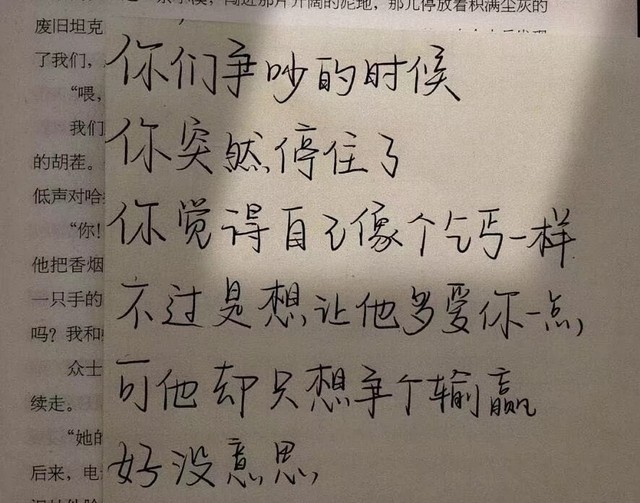 闯近那片开阔的泥地，那儿停放着积满尘灰的
废旧坦克
了我们，
“喂，
我们
的胡茬。
低声对哈
“你！
他把香烟
一只手的
吗？我和
众士
续走。
“她的
后来，电
你们争吵的时候
你突然停住了
你觉得自己像个乞丐一样
不过是想让他多爱你一点
可他却只想争个输赢
好没意思